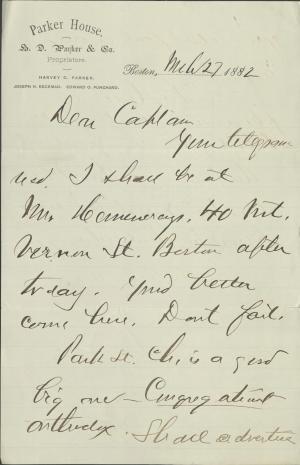 Parker House,
H. D. Parker & Co.
Proprietors.
HARVEY D. PARKER.
JOSEPH H. BECKMAN. EDWARD O. PUNCHARD.
Boston, Mch 27 1882
Dear Captain
Your telegram
recd. I shall be at
Mrs Hemenways, 40 Mt.
Vernon St. Boston after
today. You'd better
come here. Dont fail.
Park St. Ch. is a good
big one - Congregational
orthodox. Shall advertise